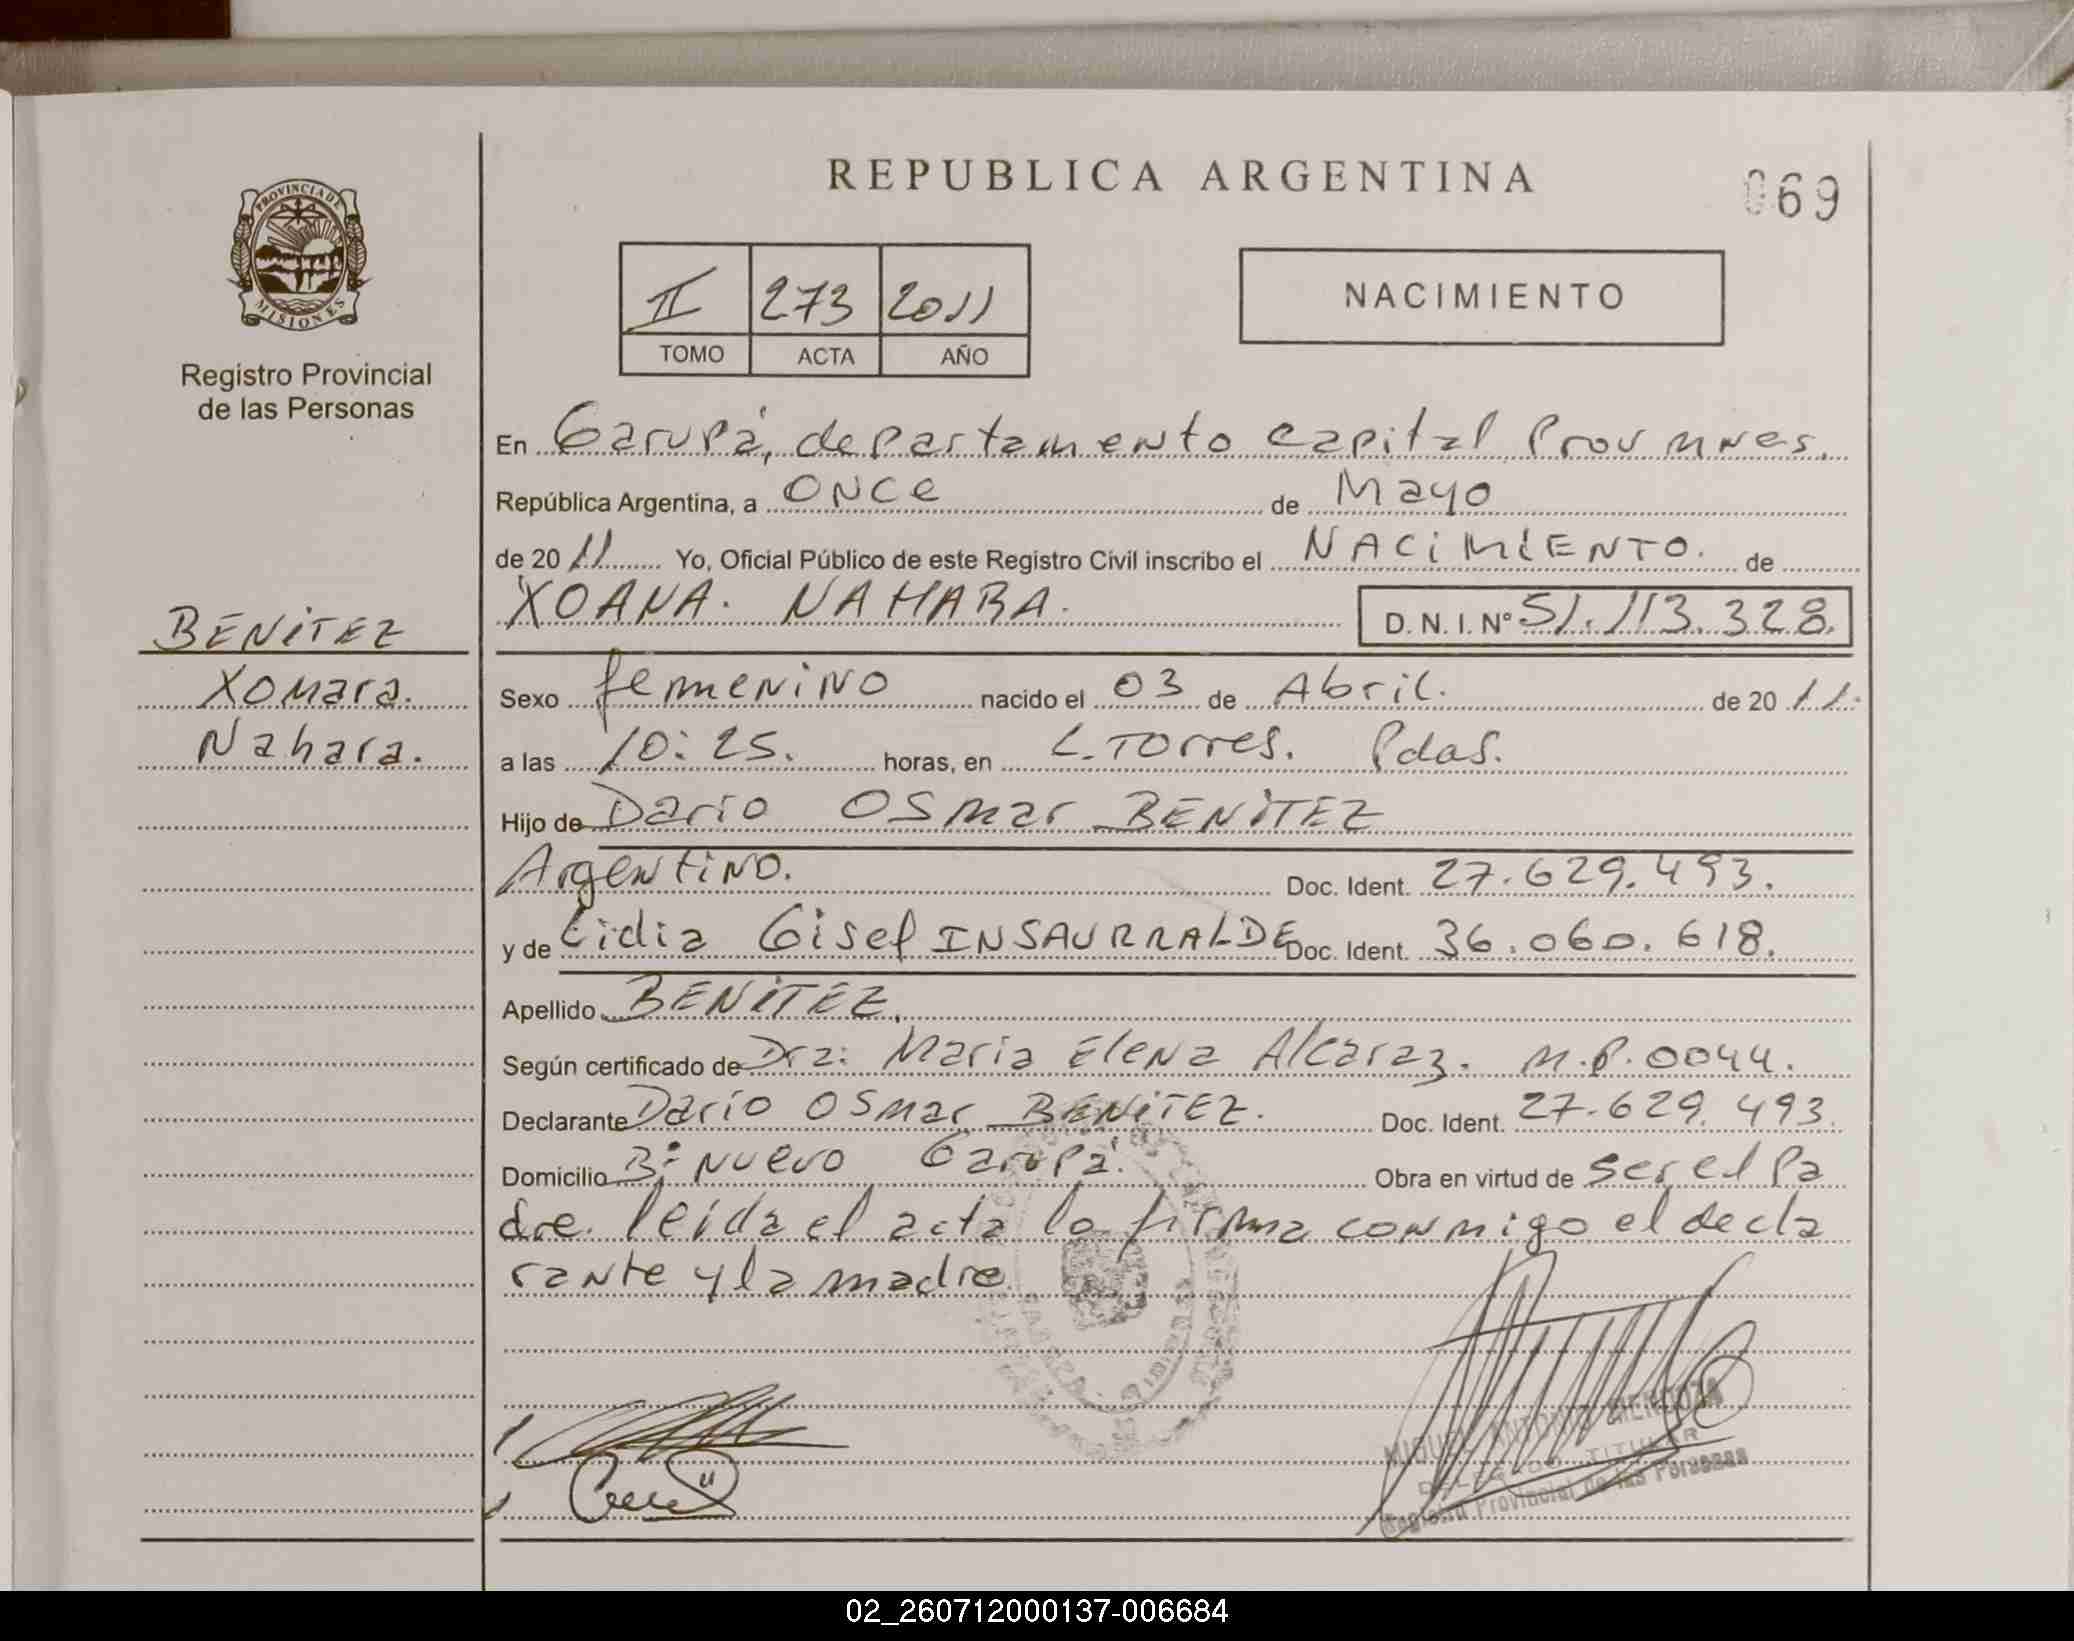 REPUBLICA ARGENTINA
069
PROVINCIA DE
MISIONES
Registro Provincial
de las Personas
II 273 2011
TOMO ACTA AÑO
NACIMIENTO
En Garupá, departamento Capital Prov Mnes.
República Argentina, a ONCE de Mayo
de 2011 Yo, Oficial Público de este Registro Civil inscribo el NACIMIENTO. de
XOANA. NAHARA. D. N. I. N° 51.113.328.
BENITEZ
Xomara.
Nahara.
Sexo femenino nacido el 03 de Abril. de 2011.
a las 10:25. horas, en L. Torres. Pdas.
Hijo de Dario Osmar BENITEZ
Argentino. Doc. Ident. 27.629.493.
y de Lidia Gisel INSAURRALDE Doc. Ident. 36.060.618.
Apellido BENITEZ.
Según certificado de Dra: Maria Elena Alcaraz. M.P. 0044.
Declarante Dario Osmar BENITEZ. Doc. Ident. 27.629.493.
Domicilio B° Nuevo Garupá. Obra en virtud de ser el Pa
dre. leida el acta la firma conmigo el decla
rante y la madre.
MIGUEL ANTONIO MENDOZA
DELEGADO TITULAR
Registro Provincial de las Personas
02_260712000137-006684